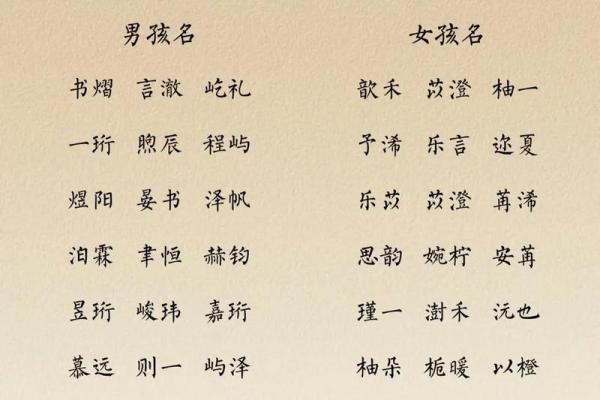 男孩名 女孩名
书熠 言澈 屹礼 歆禾 苡澄 柚一
一珩 煦辰 程屿 予浠 乐言 迩夏
煜阳 晏书 泽帆 乐苡 苡澄 苒浠
泊霖 聿恒 赫钧 思韵 婉柠 安苒
昱珩 峻玮 嘉珩 瑾一 澍禾 沅也
慕远 则一 屿泽 柚朵 栀暖 以橙